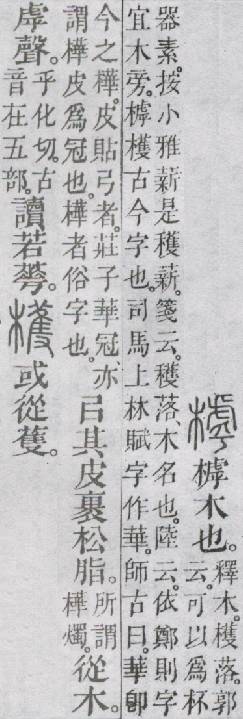 樗木也。釋木。檴落。郭
云。可以爲杯
器素。按小雅薪是穫薪。箋云。穫落、木名也。陸云。依鄭則字
宜木旁。樗檴古今字也。司馬上林賦字作華。師古曰。華卽
今之樺。皮貼弓者。莊子華冠亦
謂樺皮爲冠也。樺者俗字也。
㠯其皮裹松脂。所謂
樺燭。從木。
雩聲。乎化切。古
音在五部。讀若華。
檴或從蒦。